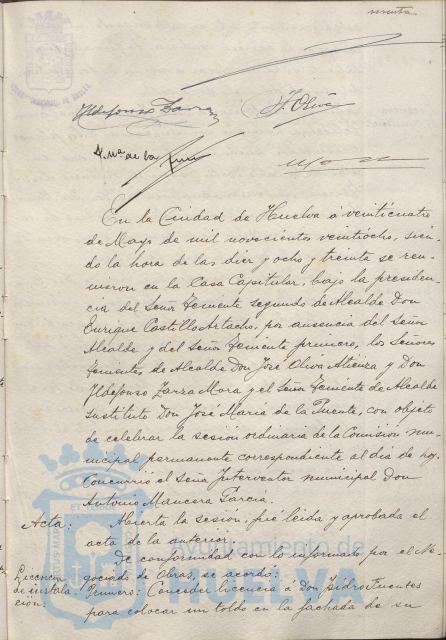 Ildefonso Zarza
J. Oliva
J. Mª de la Puente
En la Ciudad de Huelva á veinticuatro
de Mayo de mil novecientos veintiocho, sien-
do la hora de las diez y ocho y treinta se reu-
nieron en la Casa Capitular, bajo la presiden-
cia del Señor Teniente segundo de Alcalde Don
Enrique Castillo Artacho, por ausencia del Señor
Alcalde y del Señor Teniente primero, los Señores
Tenientes de Alcalde Don José Oliva Atienza y Don
Ildefonso Zarza Mora y el Señor Teniente de Alcalde
sustituto Don José Maria de la Puente, con objeto
de celebrar la sesión ordinaria de la Comisión mu-
nicipal permanente correspondiente al dia de hoy.
Concurrió el Señor Interventor municipal Don
Antonio Mancera Garcia.
Acta: Abierta la sesión, fue leida y aprobada el
acta de la anterior.
De conformidad con lo informado por el Ne-
Licencia gociado de Obras, se acordó:
de instala- Primero: Conceder licencia á Don Isidro Fuentes
ción: para colocar un toldo en la fachada de su
Ayuntamiento de
HUELVA